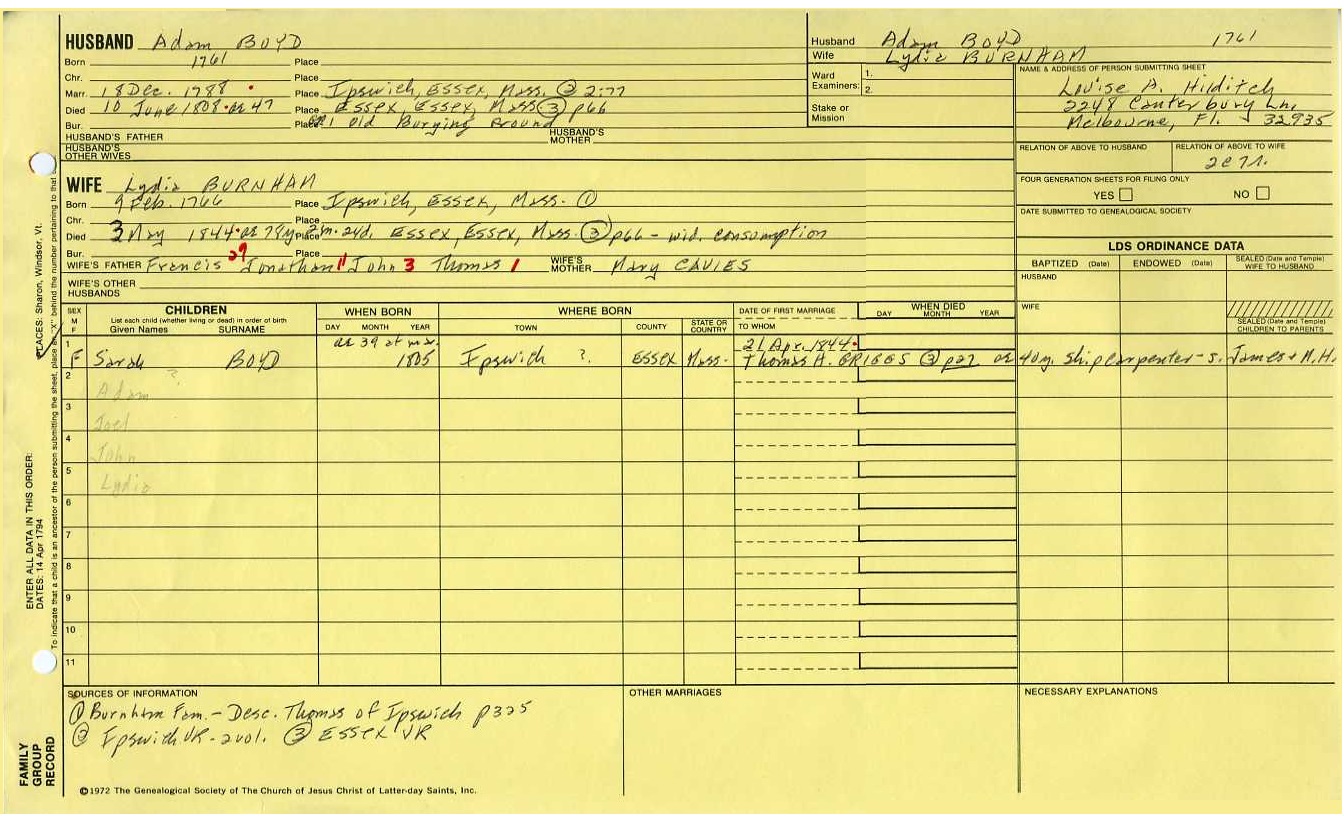 HUSBAND Adam BOYD
Born 1761 Place
Chr. Place
Marr. 18 Dec. 1788 Place Ipswich, Essex, Mass. ② 2:77
Died 10 June 1808 ae 47 Place Essex, Essex, Mass ③ p66
Bur. Place Old Burying Ground
HUSBAND'S FATHER HUSBAND'S MOTHER
HUSBAND'S OTHER WIVES
Husband Adam BOYD 1761
Wife Lydia BURNHAM
Ward Examiners: 1. 2.
Stake or Mission
NAME & ADDRESS OF PERSON SUBMITTING SHEET
Louise A. Hilditch
2248 Canterbury Ln.
Melbourne, Fl. 32935
RELATION OF ABOVE TO HUSBAND RELATION OF ABOVE TO WIFE
FOUR GENERATION SHEETS FOR FILING ONLY
YES NO
DATE SUBMITTED TO GENEALOGICAL SOCIETY
WIFE Lydia BURNHAM
Born 9 Feb. 1766 Place Ipswich, Essex, Mass. ①
Chr. Place
Died 3 May 1844 ae 78y Place 2m. 24d. Essex, Essex, Mass. ③ p66 - wid. consumption
Bur. Place
WIFE'S FATHER Francis 29 Jonathan 11 John 3 Thomas 1 WIFE'S MOTHER Mary CAVIES
WIFE'S OTHER HUSBANDS
LDS ORDINANCE DATA
BAPTIZED (Date) ENDOWED (Date) SEALED (Date and Temple) WIFE TO HUSBAND
HUSBAND
WIFE
SEALED (Date and Temple) CHILDREN TO PARENTS
SEX M F
CHILDREN
List each child (whether living or dead) in order of birth
Given Names SURNAME
WHEN BORN
DAY MONTH YEAR
WHERE BORN
TOWN COUNTY STATE OR COUNTRY
DATE OF FIRST MARRIAGE
TO WHOM
WHEN DIED
DAY MONTH YEAR
1 ae 39 at mx. 21 Apr. 1844
F Sarah BOYD 1805 Ipswich ? Essex Mass. Thomas H. GRIGGS ③ p27 ae 40y. Shipcarpenter - s. James + M.H.
2 Adam ?
3 Joel
4 John
5 Lydia
6
7
8
9
10
11
SOURCES OF INFORMATION
① Burnham Fam. - Desc. Thomas of Ipswich p325
② Ipswich VR - 2 vol. ③ Essex VR
OTHER MARRIAGES
NECESSARY EXPLANATIONS
©1972 The Genealogical Society of The Church of Jesus Christ of Latter-day Saints, Inc.
FAMILY GROUP RECORD
ENTER ALL DATA IN THIS ORDER:
DATES: 14 Apr 1794
PLACES: Sharon, Windsor, Vt.
To indicate that a child is an ancestor of the person submitting the sheet, place an "X" behind the number pertaining to that